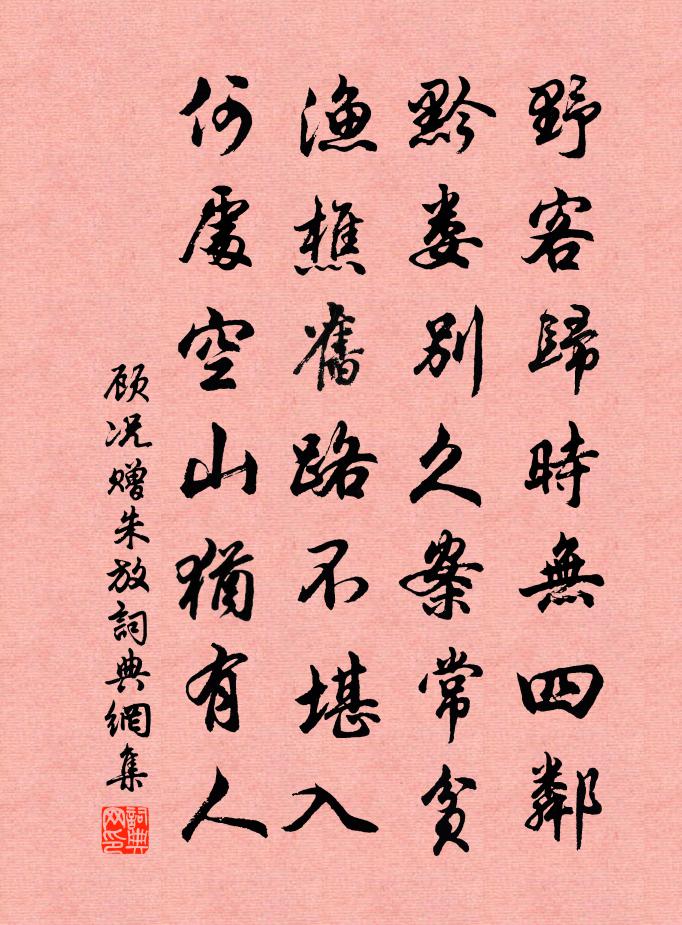 野客歸時無四鄰
黔婁別久案常貧
漁樵舊路不堪入
何處空山猶有人
顾况赠朱放詞典網集
詞典网印